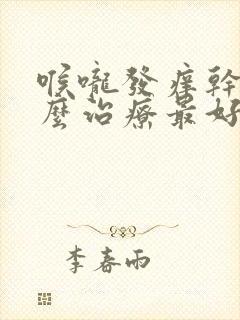 喉嚨發癢幹
麼治療最好
李春雨